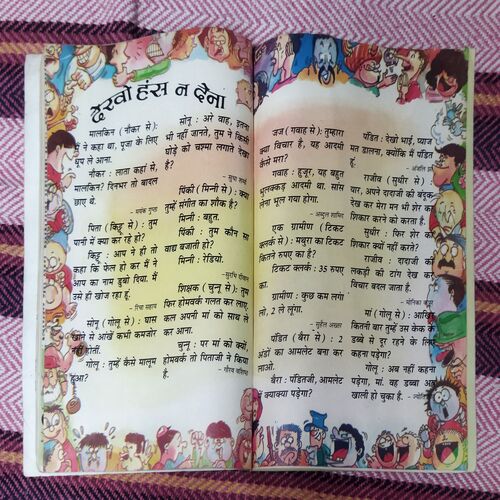 देखो हंस न देना
मालकिन (नौकर से) :
मैं ने कहा था, पूजा के लिए
धूप ले आना.
नौकर : लाता कहां से,
मालकिन? दिनभर तो बादल
छाए थे.
– मयंक गुप्ता
पिता (किट्टू से) : तुम
पानी में क्या कर रहे हो?
किट्टू : आप ने ही तो
कहा कि फेल हो कर मैं ने
आप का नाम डुबो दिया. मैं
उसे ही खोज रहा हूं.
– रिचा सहाय
सोनू (गोलू से) : घास
खाने से आंखें कभी कमजोर
नहीं होतीं.
गोलू : तुम्हें कैसे मालूम
हुआ?
सोनू : अरे वाह, इतना
भी नहीं जानते, तुम ने किसी
घोड़े को चश्मा लगाते देखा
है?
– सुधा शर्मा
पिंकी (मिन्नी से) : क्या
तुम्हें संगीत का शौक है?
मिन्नी : बहुत.
पिंकी : तुम कौन सा
वाद्य बजाती हो?
मिन्नी : रेडियो.
शिक्षक (चुन्नू से) : तुम
फिर होमवर्क गलत कर लाए,
कल अपनी मां को साथ ले
कर आना.
चुन्नू : पर मां को क्यों,
होमवर्क तो पिताजी ने किया
है.
– गौरव वाशिष्ठ
जज (गवाह से) : तुम्हारा
क्या विचार है, यह आदमी
कैसे मरा?
गवाह : हुजूर, यह बहुत
भुलक्कड़ आदमी था. सांस
लेना भूल गया होगा.
– अब्दुल शामिर
एक ग्रामीण (टिकट
क्लर्क से) : मथुरा का टिकट
कितने रुपए का है?
टिकट क्लर्क : 35 रुपए
का.
ग्रामीण : कुछ कम लगा
लो, 2 ले लूंगा.
– नुसरत अख्तर
पंडित (बैरा से) : 2
अंडों का आमलेट बना कर
लाओ.
बैरा : पंडितजी, आमलेट
में क्याक्या पड़ेगा?
पंडित : देखो भाई, प्याज
मत डालना, क्योंकि मैं पंडित
हूं.
राजीव (सुधीर से) :
यार, अपने दादाजी की बंदूक
देख कर मेरा मन भी शेर का
शिकार करने को करता है.
सुधीर : फिर शेर का
शिकार क्यों नहीं करते?
राजीव : दादाजी की
लकड़ी की टांग देख कर
विचार बदल जाता है.
– मोनिका
मां (से) : आखिर
कितनी बार तुम्हें उस केक के
डब्बे से दूर रहने के लिए
कहना पड़ेगा?
: अब नहीं कहना
पड़ेगा, मां. वह डब्बा अब
खाली हो चुका है.